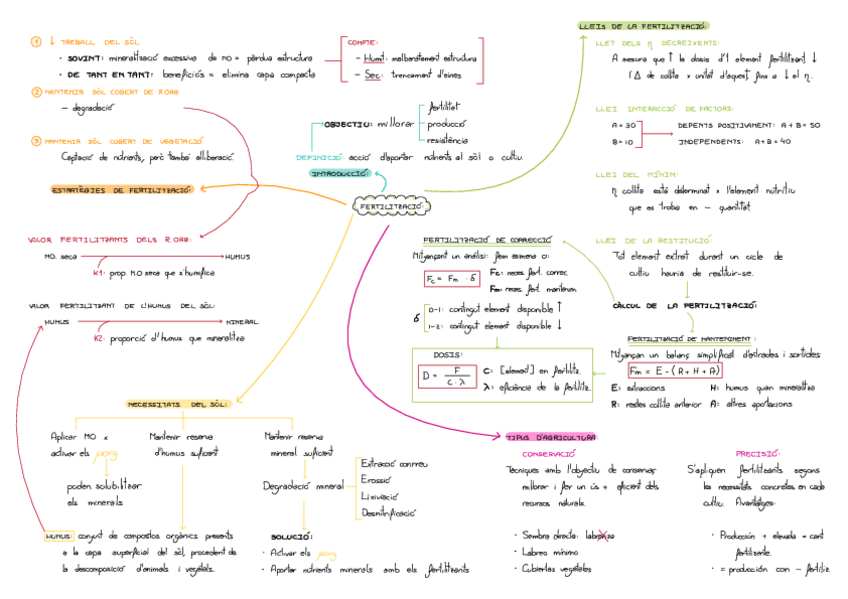 FERTILITZACIÓ:
INTRODUCCIÓ:
DEFINICIÓ: acció d'aportar nutrients al sòl o cultiu.
OBJECTIU: millorar
fertilitat
producció
resistència
ESTRATÈGIES DE FERTILITZACIÓ:
① ↓ TREBALL DEL SÒL
· SOVINT: mineralització excessiva de MO = pèrdua estructura
· DE TANT EN TANT: beneficiós = elimina capa compacta
COMPTE:
- Humit: malbaratament estructura
- Sec: trencament d'eines
② MANTENIR SÒL COBERT DE R.ORG
- degradació
③ MANTENIR SÒL COBERT DE VEGETACIÓ
Captació de nutrients, però també alliberació.
VALOR FERTILITZANTS DELS R.ORG:
MO. seca → HUMUS
K1: prop. MO seca que s'humifica
VALOR FERTILITZANT DE L'HUMUS DEL SÒL:
HUMUS → MINERAL
K2: proporció d'humus que mineralitza
NECESSITATS DEL SÒL:
Aplicar MO x
activar els µorg
poden solubilitzar
els minerals
Mantenir reserva
d'humus suficient
Mantenir reserva
mineral suficient
Degradació mineral
Extracció conreu
Erosió
Lixiviació
Desnitrificació
SOLUCIÓ:
· Activar els µorg
· Aportar nutrients minerals amb els fertilitzants.
HUMUS: conjunt de compostos orgànics presents
a la capa superficial del sòl, procedent de
la descomposició d'animals i vegetals.
LLEIS DE LA FERTILITZACIÓ:
LLEI DELS η DECREIXENTS:
A mesura que ↑ la dosis d'1 element fertilitzant ↓
l'Δ de collita x unitat d'aquest fins a ↓ el η.
LLEI INTERACCIÓ DE FACTORS:
A=30
B=10
DEPENTS POSITIVAMENT: A+B=50
INDEPENDENTS: A+B=40
LLEI DEL MÍNIM:
η collita està determinat x l'element nutritiu
que es troba en - quantitat
LLEI DE LA RESTITUCIÓ:
Tot element extret durant un cicle de
cultiu hauria de restituir-se.
CÀLCUL DE LA FERTILITZACIÓ:
FERTILITZACIÓ DE MANTENIMENT:
Mitjançan un balanç simplificat d'entrades i sortides
Fm = E - (R + H + A)
E: extraccions
H: humus quan mineralitza
R: restes collita anterior
A: altres aportacions
FERTILITZACIÓ DE CORRECCIÓ
Mitjançant un anàlisi: fem esmena o:
Fc = Fm · δ
Fc: neces. fert. correc.
Fm: neces. fert. mantenim.
δ
0-1: contingut element disponible ↑
1-2: contingut element disponible ↓
DOSIS:
D = F / c·λ
C: [element] en fertilitz.
λ: eficiència de la fertilitz.
TIPUS D'AGRICULTURA:
CONSERVACIÓ
Tècniques amb l'objectiu de conservar,
millorar i fer un ús + eficient dels
recursos naturals.
· Sembra directa: labranza
· Labreo mínimo
· Cubiertas vegetales
PRECISIÓ:
S'apliquen fertilitzants segons
les necessitats concretes en cada
cultiu. Avantatges:
· Producción + elevada = cant
fertilizante.
· = producción con - fertiliz.